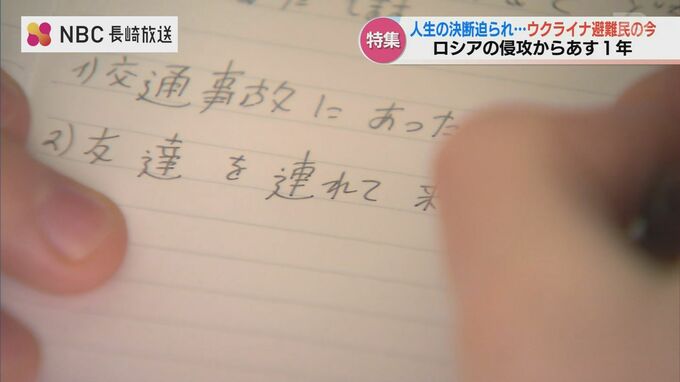 NBC 長崎放送
特集
人生の決断迫られ…ウクライナ避難民の今
ロシアの侵攻からあす1年
1)交通事故にあった
2)友達を連れて